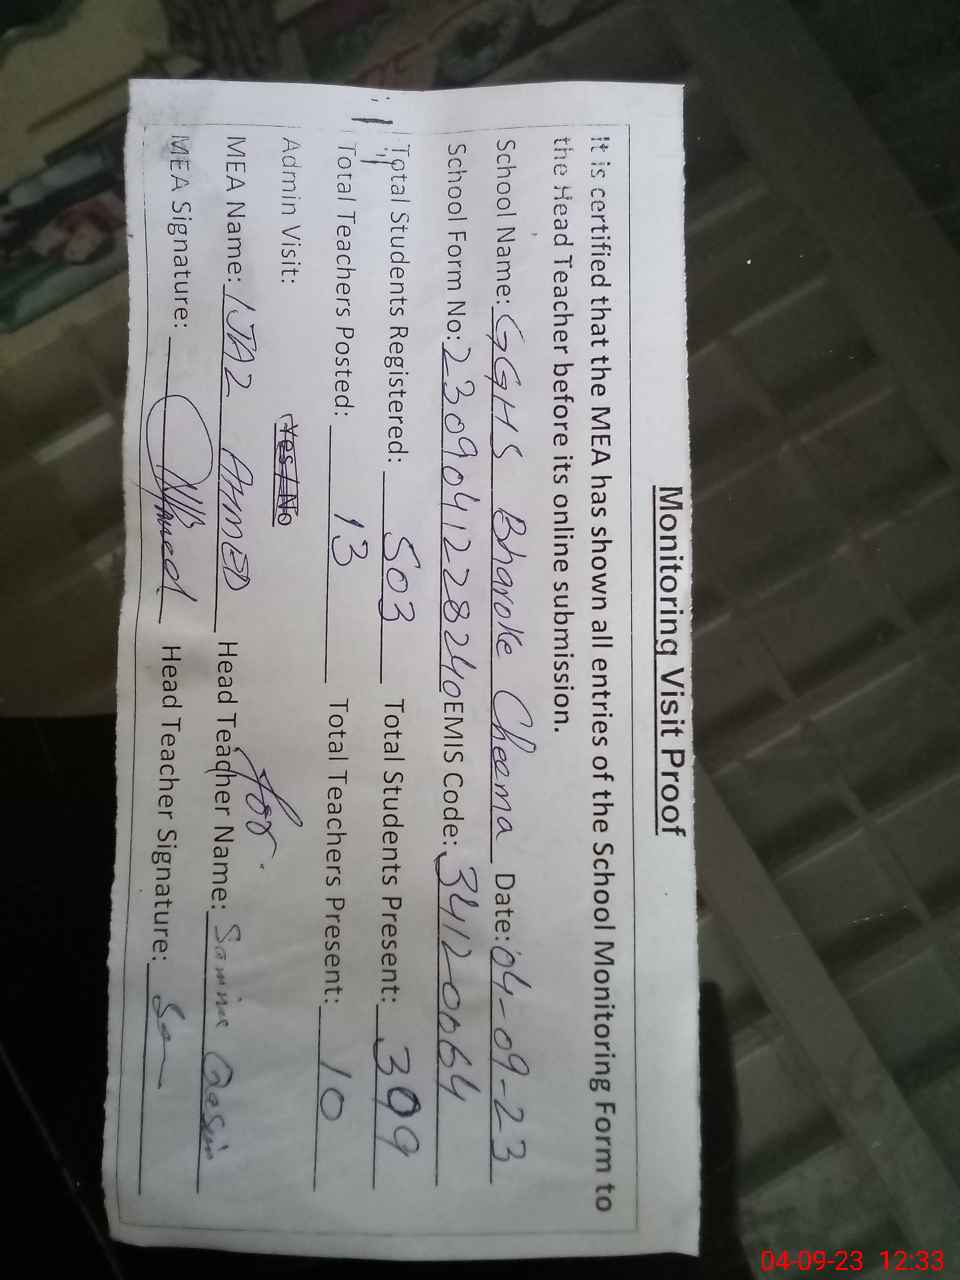 Monitoring Visit Proof
It is certified that the MEA has shown all entries of the School Monitoring Form to
the Head Teacher before its online submission.
School Name: GGHS Bharoke Cheema Date: 04-09-23
School Form No: 2309041228240 EMIS Code: 34120064
Total Students Registered: 503 Total Students Present: 399
Total Teachers Posted: 13 Total Teachers Present: 10
Admin Visit: Yes/No
for
MEA Name: IJAZ AHMED Head Teacher Name: Samina
MEA Signature: Ahmed Head Teacher Signature:
04-09-23 12:33